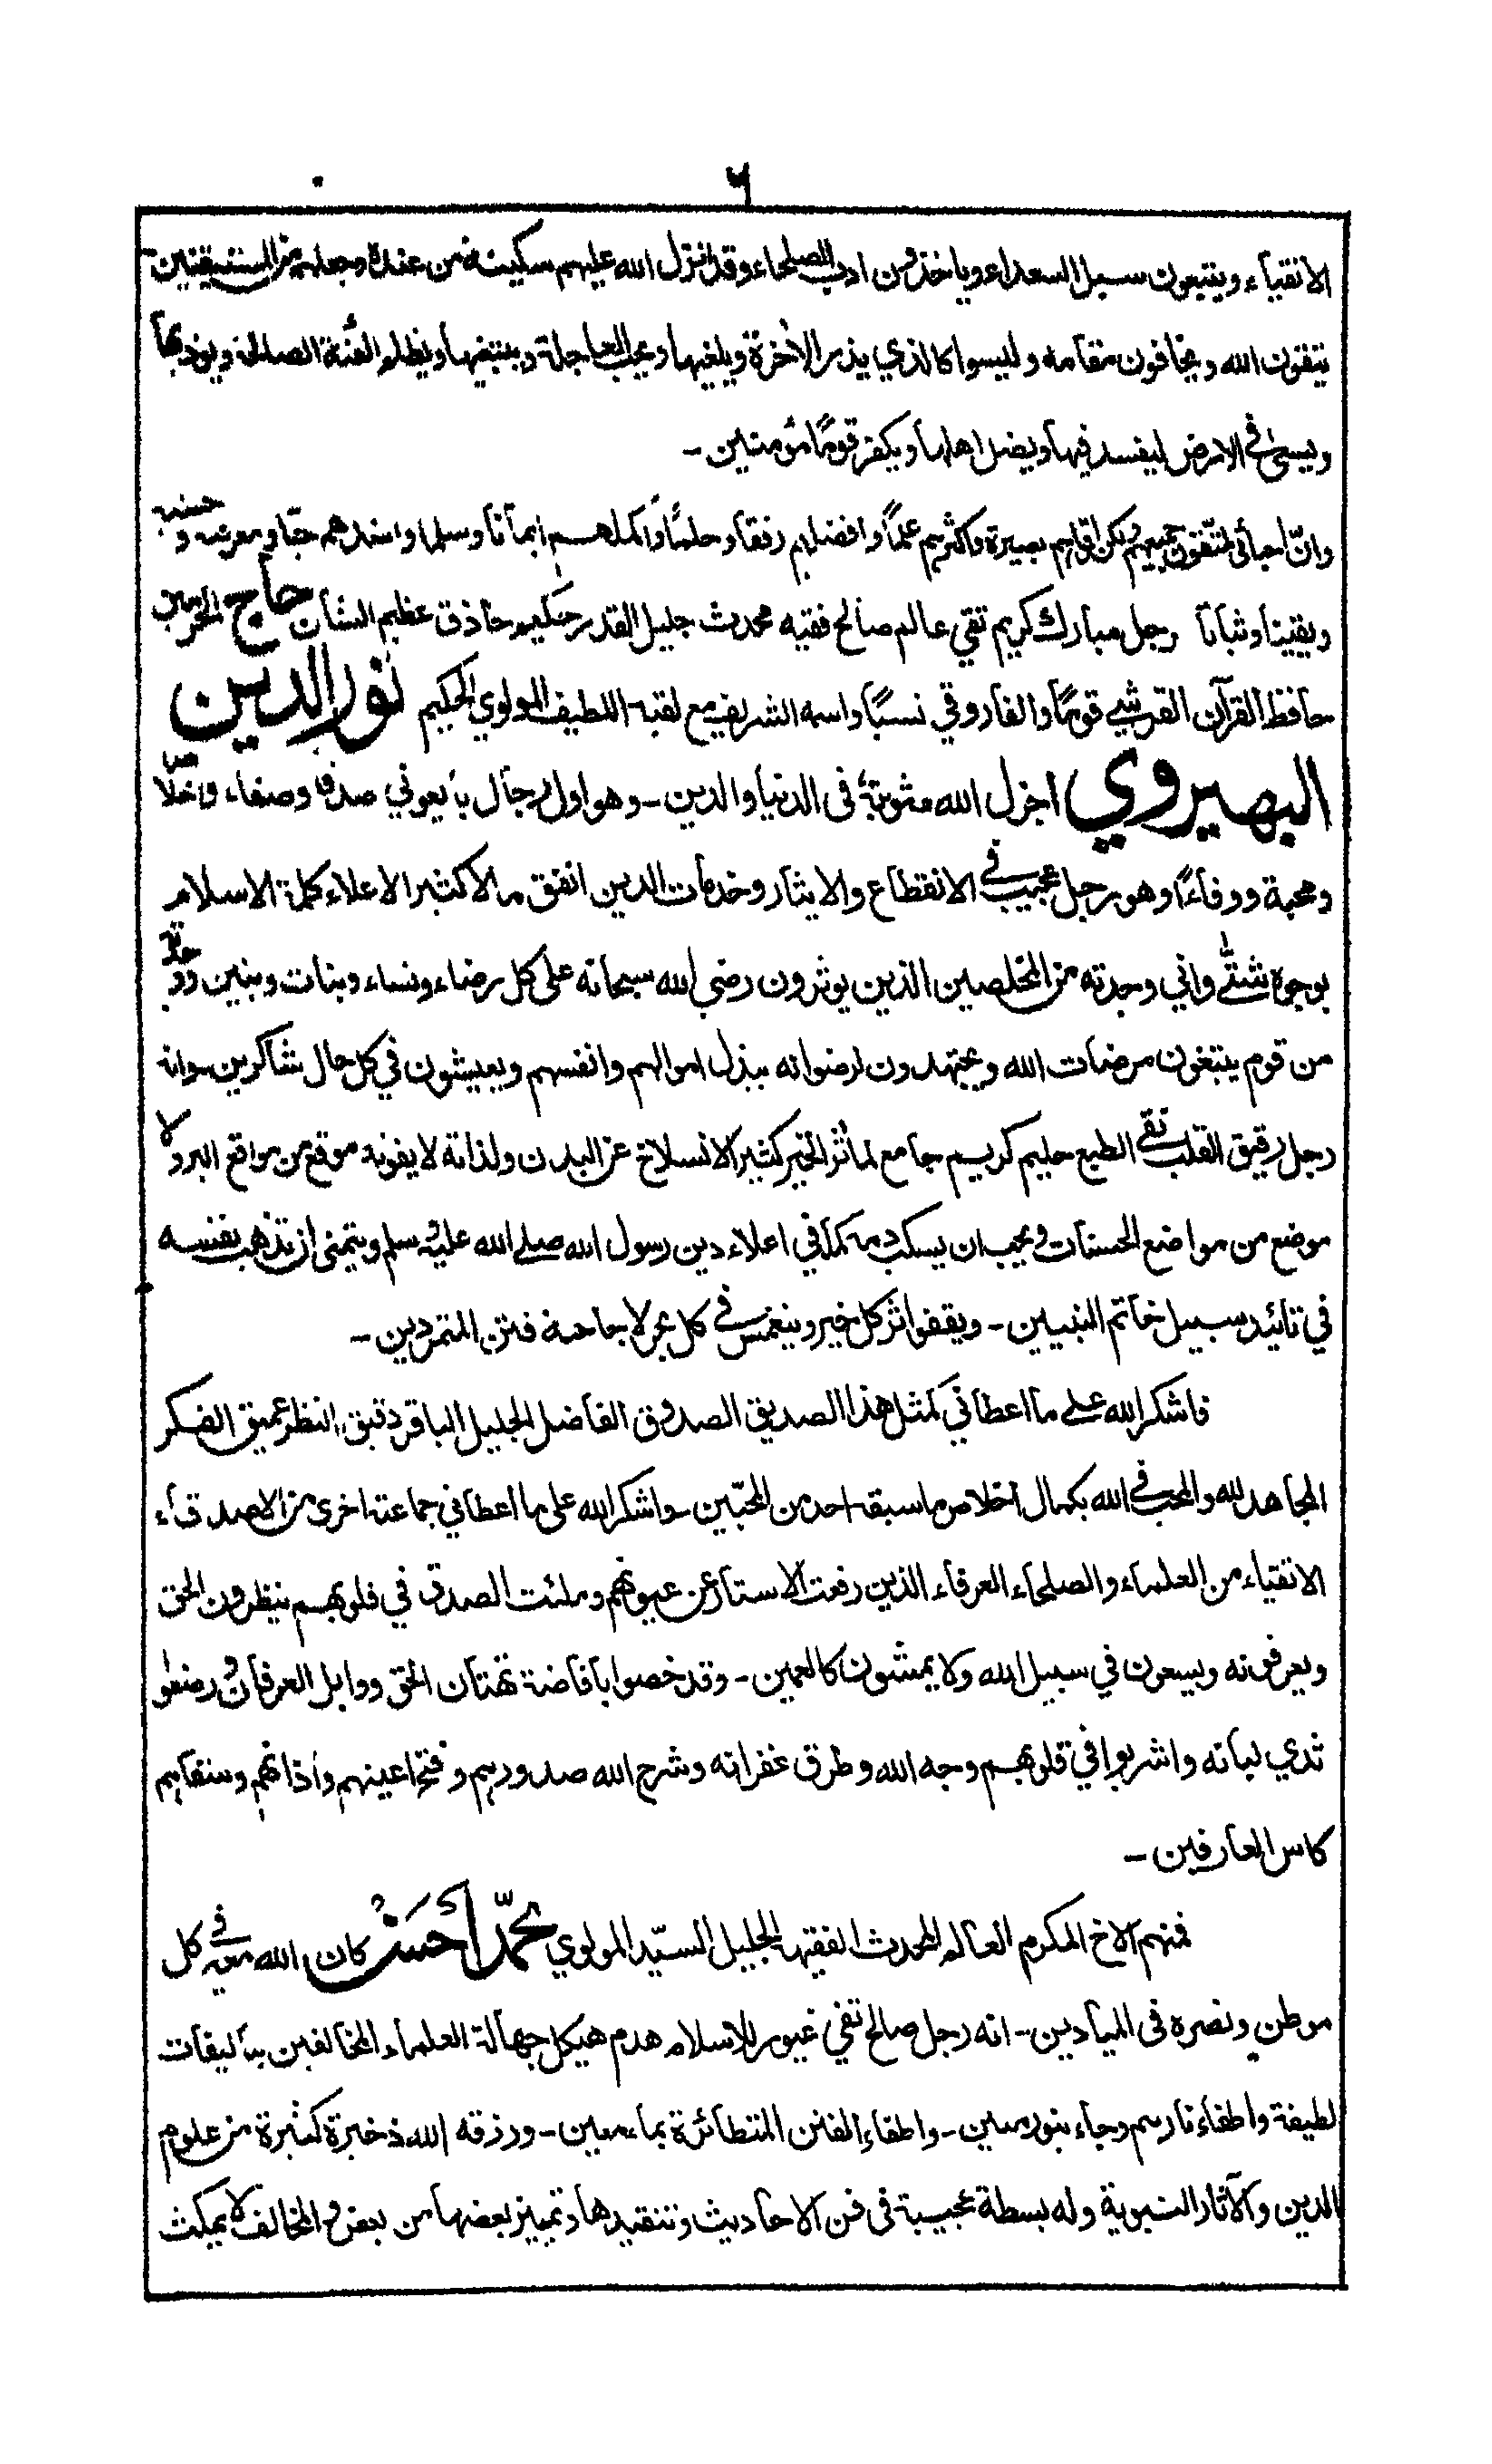 ٦
الاتقياء ويتبعون سبل السعداء وياخذون ادب الصلحاء وقد انزل الله عليهم سكينة من عنده وجعلهم من المستيقنين
يتقون الله ويخافون مقامه وليسوا كالذي يذر الآخرة ويلغيها ويحب العاجلة ويبتغيها ويظلم الفئة الصالحة ويوذيها
ويسعى في الارض ليفسد فيها ويضل اهلها ويكفر قومًا مؤمنين -
وانّ احبائى لمتقون جميعهم ولكن اقواهم بصيرة واكثرهم علمًا وافضلهم رفقا وحلمًا واكملهم ايمانا وسلما واشدهم حبّا ومعرفة وخشية
ويقينا وثباتا رجل مبارك كريم تقي عالم صالح فقيه محدث جليل القدر حكيم حاذق عظيم الشان حاج الحرمين
حافظ القرآن القرشي قومًا والفاروقي نسبًا واسمه الشريف مع لقبه اللطيف المولوي الحكيم نور الدين
البهيروي اجزل الله مثوبته فى الدنيا والدين - وهو اول رجال بايعوني صدقا وصفاء واخلاصا
ومحبة ووفاءًا وهو رجل عجيب في الانقطاع والايثار وخدمات الدين انفق مالا كثيرا لاعلاء كلمة الاسلام
بوجوه شتّٰى واني وجدته من المخلصين الذين يوثرون رضى الله سبحانه على كل رضاء ونساء وبنات وبنين ووجدته
من قوم يبتغون مرضات الله ويجتهدون لرضوانه ببذل اموالهم وانفسهم ويعيشون في كل حال شاكرين - وانه
رجل رقيق القلب نقي الطبع حليم كريم جامع لمآثر الخير كثير الانسلاخ عن البدن ولذاته لا يفوته موقع من مواقع البر ولا
موضع من مواضع الحسنات ويحب ان يسكب دمه كماء في اعلاء دين رسول الله صلى الله عليه وسلم ويتمنى ان تذهب نفسه
في تائيد سبيل خاتم النبيين - ويقفوا اثر كل خير وينغمس في كل بحر لاجاحة فتن المتمردين -
فاشكر الله على ما اعطاني كمثل هذا الصديق الصدوق الفاضل الجليل الباقر دقيق النظر عميق الفكر
المجاهد لله والمحب في الله بكمال اخلاص ما سبقه احد من المحبّين - واشكر الله على ما اعطاني جماعة اخرى من الاصدقاء
الاتقياء من العلماء والصلحاء العرفاء الذين رفعت الاستار عن عيونهم وملئت الصدق في قلوبهم ينظرون الحق
ويعرفونه ويسعون في سبيل الله ولا يمشون كالعمين - وقد خصوا بافاضة تهتان الحق ووابل العرفان ورضعوا
ثدي لبانه واشربوا في قلوبهم وجه الله وطرق غفرانه وشرح الله صدورهم وفتح اعينهم واذانهم وسقاهم
كاس العارفين -
فمنهم الاخ المكرم العالم المحدث الفقيه الجليل السيّد المولوي محمّد أحسن كان الله معه في كل
موطن ونصره فى الميادين - انه رجل صالح تقي غيور للاسلام هدم هيكل جهالة العلماء المخالفين بتاليفات
لطيفة واطفاء نارهم وجاء بنور مبين - واطفاء الفتن المتطائرة بماء معين - ورزقه الله ذخيرة كثيرة من علوم
الدين والآثار النبوية وله بسطة عجيبة فى فن الاحاديث وتنقيدها وتمييز بعضها من بعض والمخالف لا يمكث